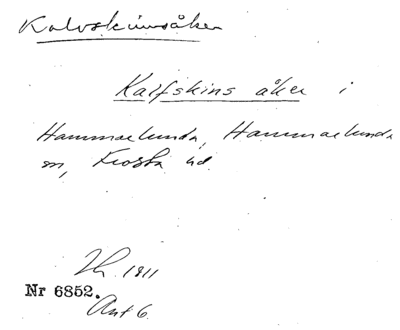 Kalvskinnsåker
Kalfskins åker i
Hammarlunda, Hammarlunda
sn, Frosta hd.
Th. 1911
Nr 6852.
Ant 6.